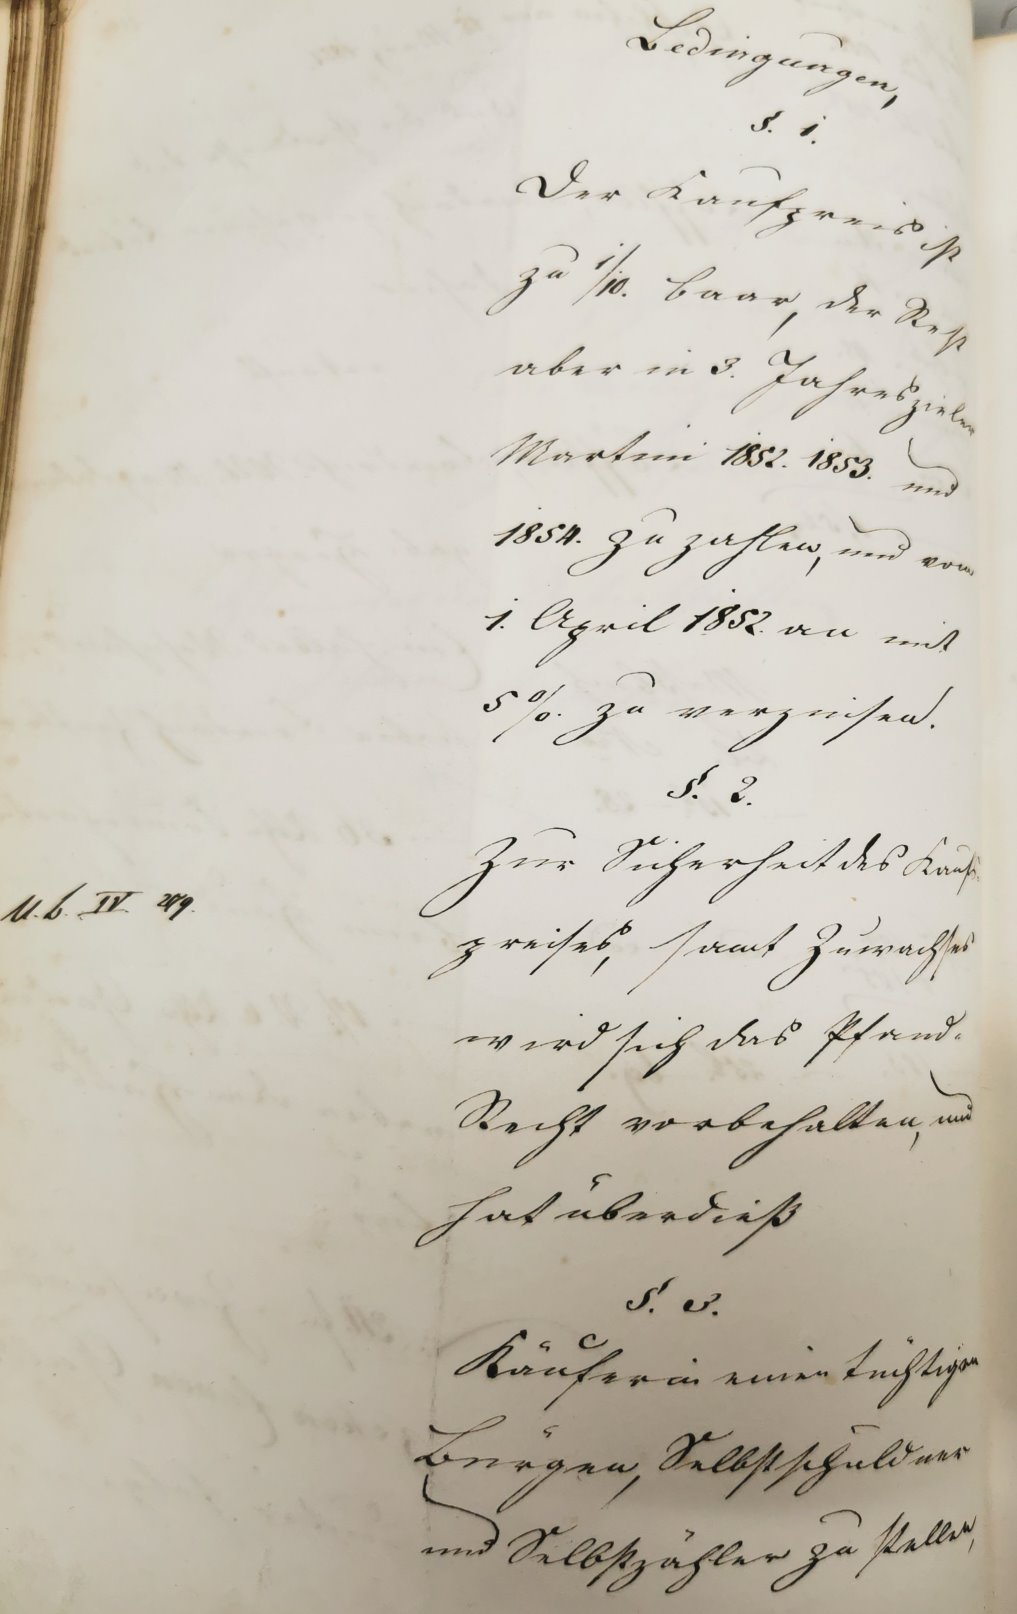 Bedingungen,
§. 1.
Der Kaufpreis ist
zu 1/10. baar, der Rest
aber in 3. Jahreszielen
Martini 1852. 1853. und
1854. zu zahlen, und vom
1. April 1852. an mit
5 %. zu verzinsen.
§. 2.
Zur Sicherheit des Kauf-
U. b. IV 279.
preises, samt Zuwachses
wird sich das Pfand-
Recht vorbehalten, und
hat überdieß
§. 3.
Käuferin einen tüchtigen
Bürgen, Selbstschuldner
und Selbstzähler zu stellen,